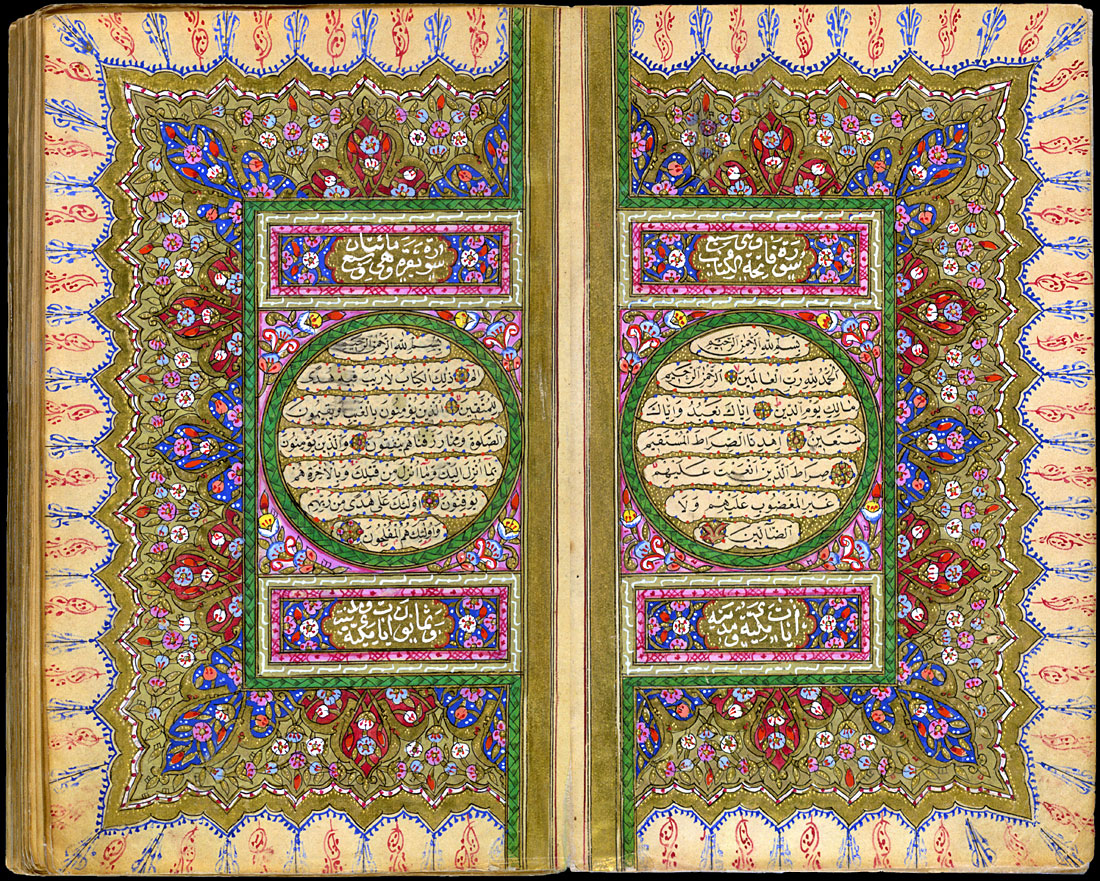 سورة فاتحة الكتاب وهى سبع
بسم الله الرحمن الرحيم
الحمد لله رب العالمين الرحمن الرحيم
مالك يوم الدين اياك نعبد واياك
نستعين اهدنا الصراط المستقيم
صراط الذين انعمت عليهم
غير المغضوب عليهم ولا
الضالين
آيات مكية ومدنية
سورة بقره مائتان وهى وسبع
بسم الله الرحمن الرحيم
الم ذلك الكتاب لا ريب فيه هدى
للمتقين الذين يؤمنون بالغيب ويقيمون
الصلوة ومما رزقناهم ينفقون والذين يؤمنون
بما انزل اليك وما انزل من قبلك وبالآخرة هم
يوقنون اولئك على هدى من ربهم
واولئك هم المفلحون
وثمانون آيات مكية